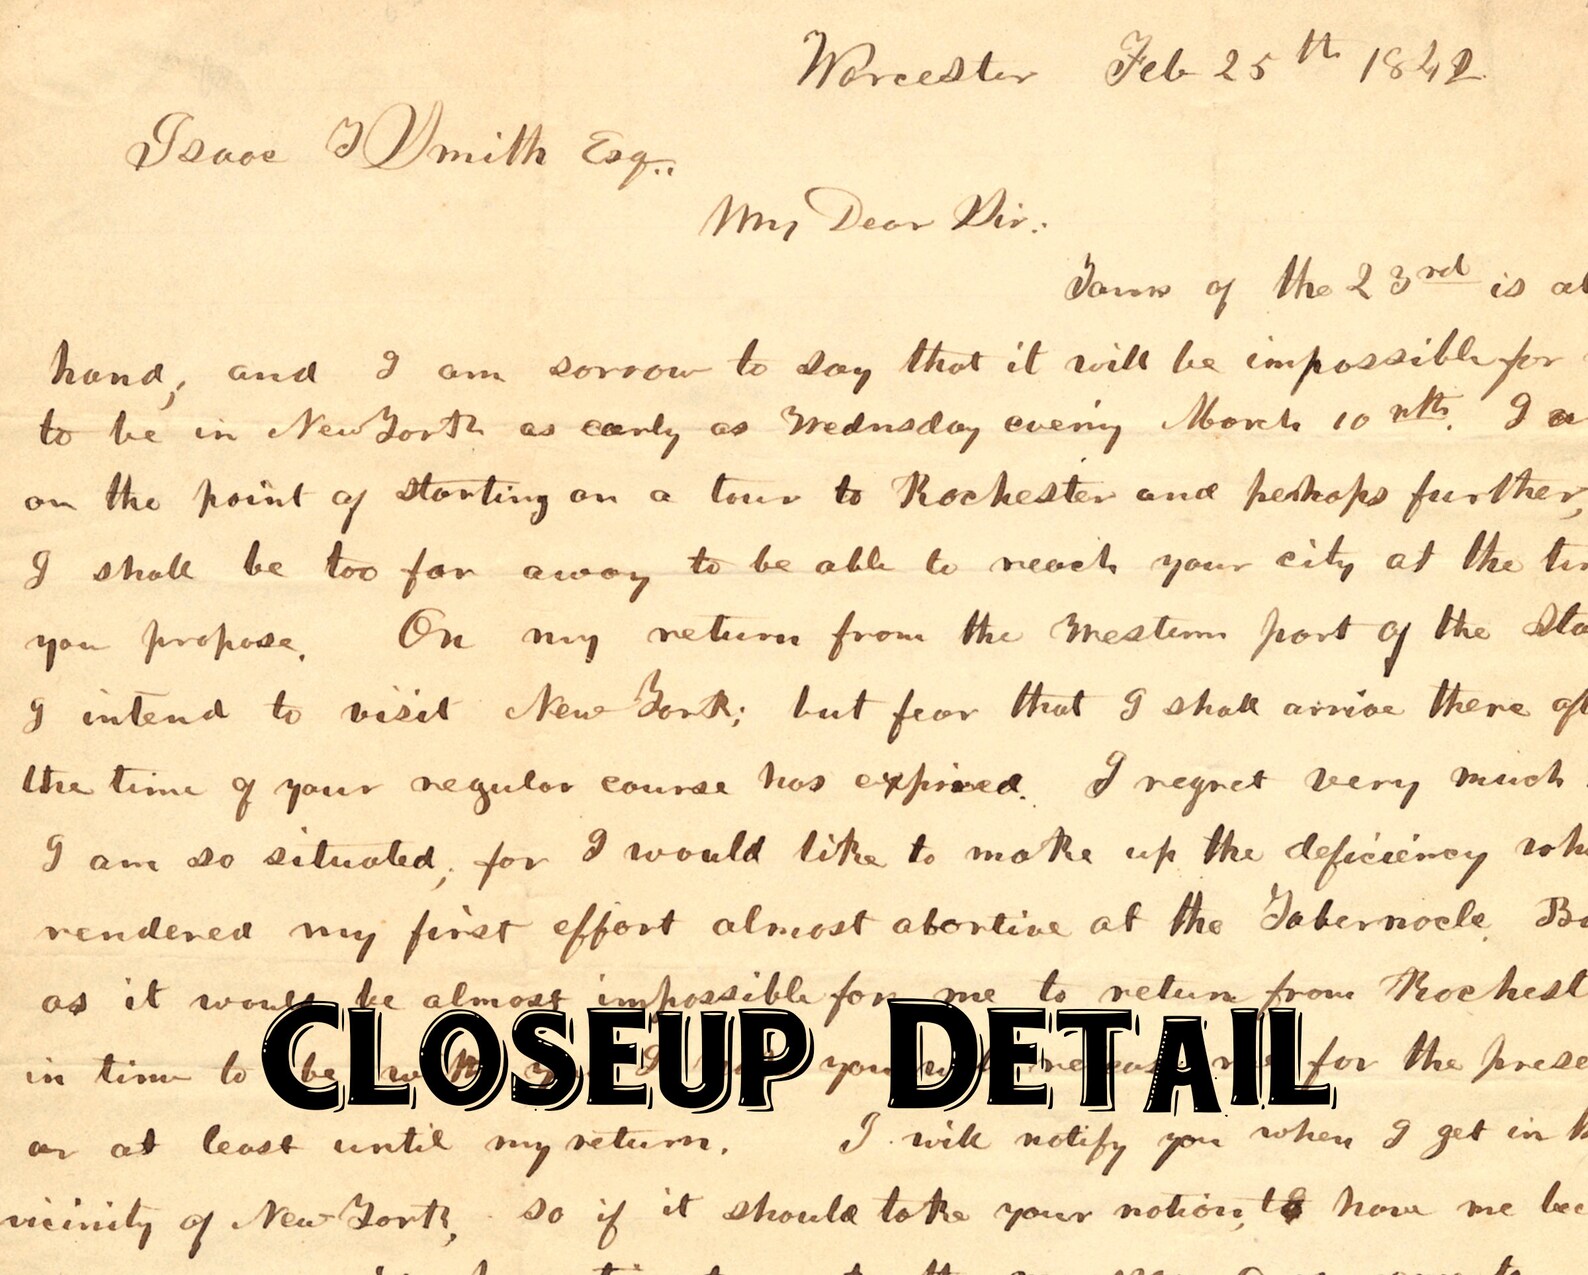 Worcester Feb 25th 1842
Isaac T Smith Esq.
My Dear Sir:
Yours of the 23rd is at
hand, and I am sorrow to say that it will be impossible for
to be in New York as early as Wednesday evening March 10th. I a
on the point of starting on a tour to Rochester and perhaps further,
I shall be too far away to be able to reach your city at the tim
you propose. On my return from the western part of the Sta
I intend to visit New York; but fear that I shall arrive there aft
the time of your regular course has expired. I regret very much
I am so situated, for I would like to make up the deficiency whi
rendered my first effort almost abortive at the Tabernacle. Bu
as it would be almost impossible for me to return from Rochest
in time to be with you I you will release me for the prese
or at least until my return. I will notify you when I get in
vicinity of New York, so if it should take your notion, to have me lec
CLOSEUP DETAIL